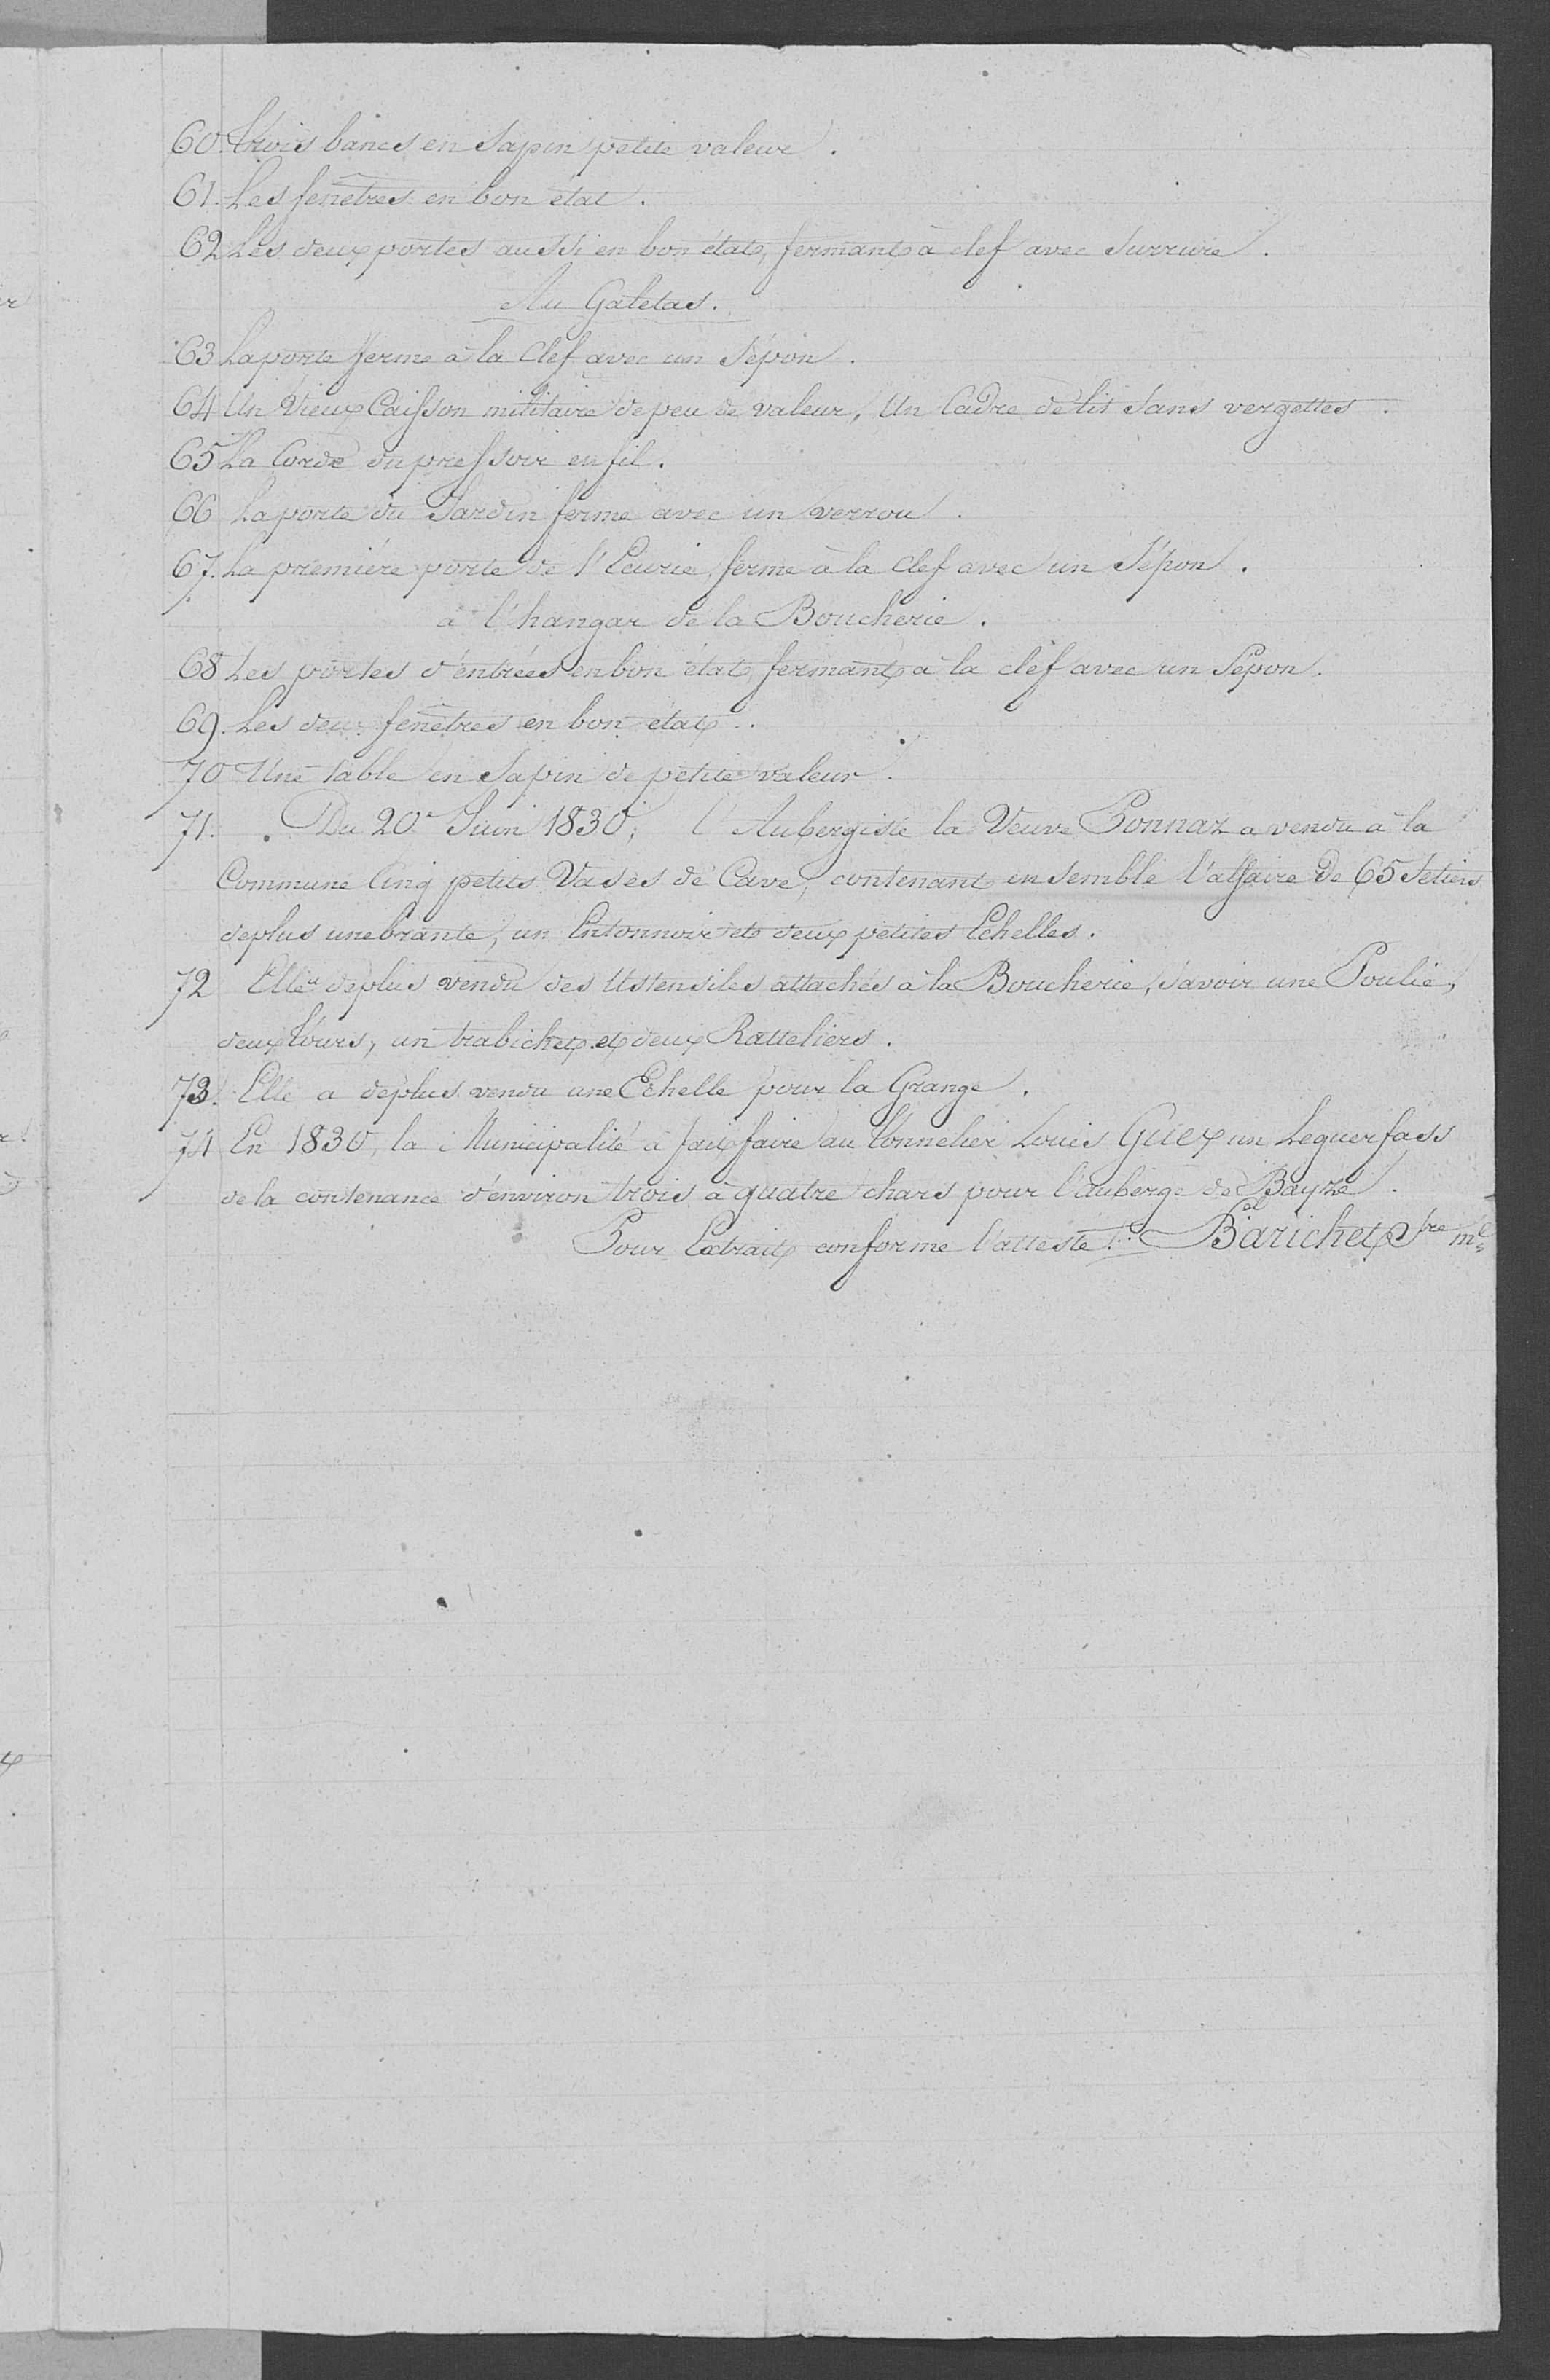 60. Trois bancs en Sapin petite valeur.
61. Les fenêtres en bon état.
62 Les deux portes aussi en bon état, fermant à clef avec Surrure.
Au Galetas.
63 La porte ferme à la Clef avec un Sépon.
64 Un Vieux Caisson militaire de peu de valeur, Un Cadre de lit Sans vergettes.
65 La Corde du pressoir en fil.
66 La porte du Jardin ferme avec un verrou.
67. La première porte de l'Ecurie, ferme à la Clef avec un Sépon.
à l'hangar de la Boucherie.
68 Les portes d'entrées en bon état fermant à la clef avec un Sépon.
69. Les deux fenêtres en bon état.
70 Une table en Sapin de petite valeur.
71. Du 20e Juin 1830, l'Aubergiste la Veuve Ponnaz a vendu à la
Commune Cinq petits Vases de Cave, contenant ensemble l'affaire de 65 Setiers
deplus une brante, un Entonnoir et deux petites Echelles.
72 Elle a deplus vendu des Ustensiles attachés à la Boucherie, Savoir une Poulie,
deux tours, un trabichet et deux Ratteliers.
73. Elle a deplus vendu une Echelle pour la Grange.
74 En 1830, la Municipalité a fait faire au tonnelier Louis Guex un Leguerfass
de la contenance d'environ trois à quatre chars pour l'auberge de Bayze.
Pour Extrait conforme l'atteste: Barichet Sre ml